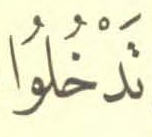 تَدْخُلُوا